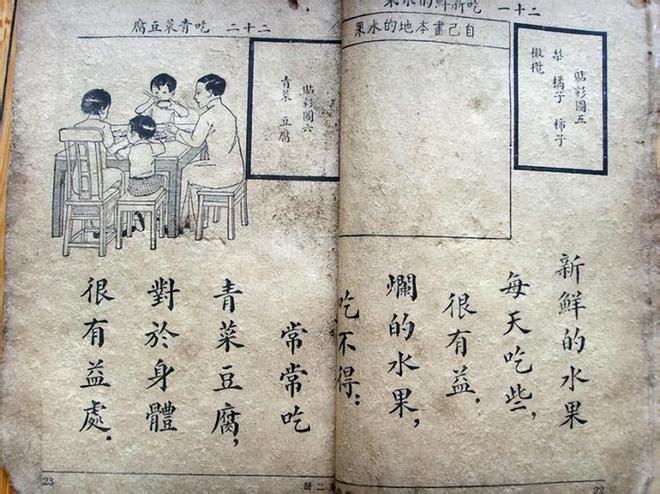 二十一 吃新鮮的水果
貼彩圖五
梨 橘子 柿子
橄欖
自己畫本地的水果
新鮮的水果
每天吃些,
很有益.
爛的水果,
吃不得:
22
二十二 吃青菜豆腐
貼彩圖六
青菜 豆腐
常常吃
青菜豆腐,
對於身體
很有益處.
23